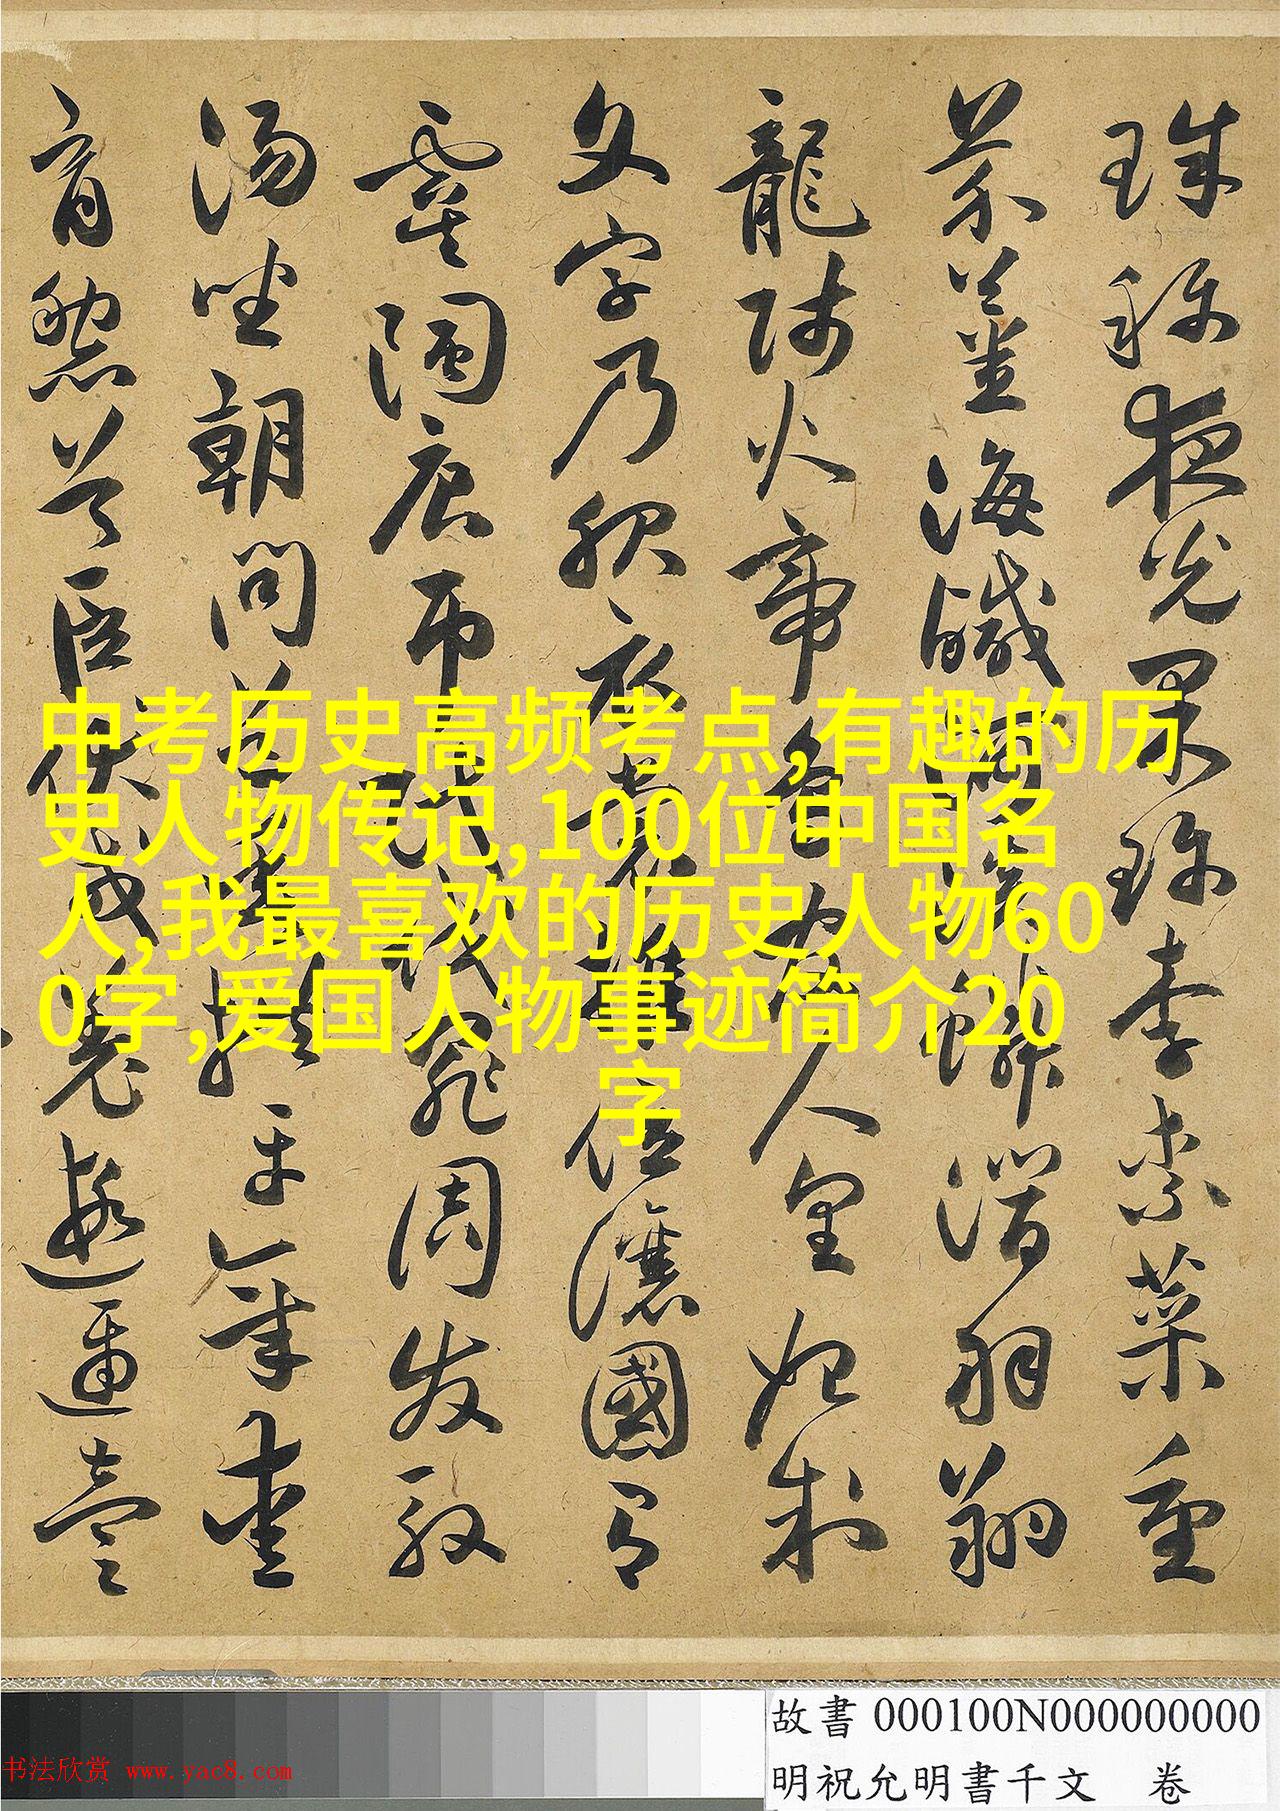 珠称夜光果珍李柰菜重
芥薑海鹹河淡鱗潛羽翔
龍師火帝鳥官人皇始制
文字乃服衣裳推位讓國有
虞陶唐弔民伐罪周发殷
湯坐朝問道垂拱平章愛
育黎首臣伏戎羌遐邇壹
中考历史高频考点,有趣的历
史人物传记,100位中国名
人,我最喜欢的历史人物60
0字,爱国人物事迹简介20
字
故書 000100N000000000
明祝允明書千文 卷
书法欣赏 www.yac8.com